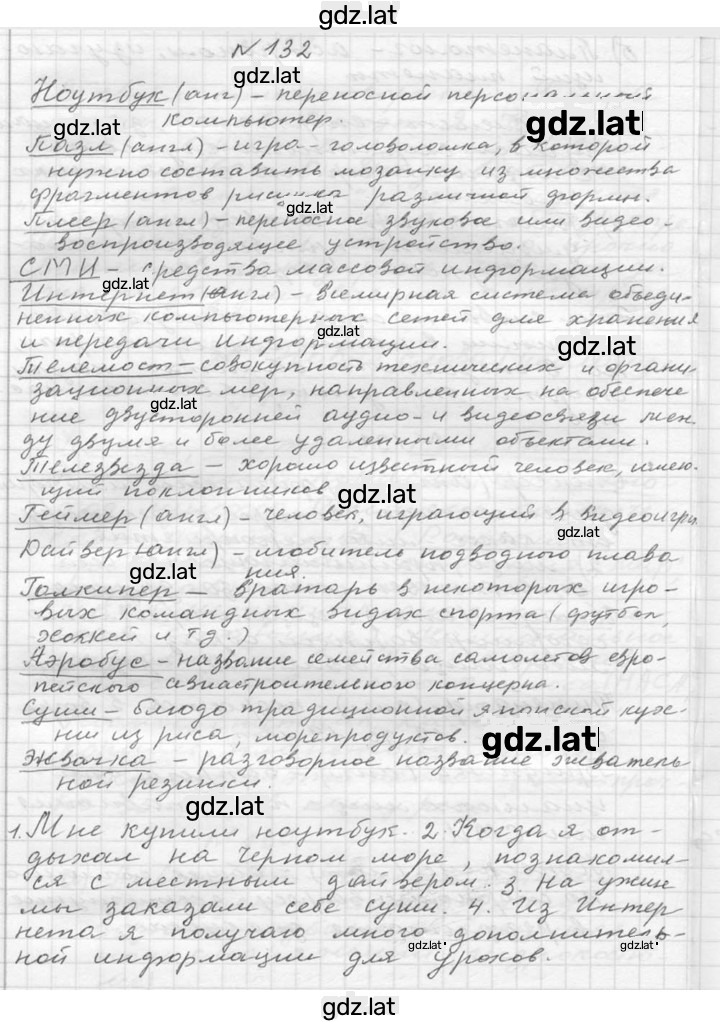 gdz.lat
№ 132
gdz.lat
Ноутбук (анг) – переносной персональный
gdz.lat компьютер. gdz.lat
Пазл (англ) – игра – головоломка, в которой
нужно составить мозаику из множества
фрагментов рисунка различной формы.
gdz.lat
Плеер (англ) – переносное звуковое или видео-
воспроизводящее устройство.
СМИ – средства массовой информации.
gdz.lat
Интернет (англ) – всемирная система объеди-
ненных компьютерных сетей для хранения
gdz.lat
и передачи информации. gdz.lat
Телемост – совокупность технических и органи-
зационных мер, направленных на обеспече
gdz.lat
ние двусторонней аудио- и видеосвязи меж-
ду двумя и более удаленными объектами.
Телезвезда – хорошо известный человек, имею-
щий поклонников gdz.lat
Геймер (англ) – человек, играющий в видеоигры.
gdz.lat
Дайвер (англ) – любитель подводного плава
gdz.lat ния.
Голкипер – вратарь в некоторых игро-
вых командных видах спорта (футбол,
хоккей и тд.)
Аэробус – название семейства самолетов евро-
пейского авиастроительного концерна.
Суши – блюдо традиционной японской кух-
ни из риса, морепродуктов. gdz.lat
Жвачка – разговорное название жеватель
ной резинки.
gdz.lat
1. Мне купили ноутбук. 2. Когда я от-
дыхал на Черном море, познакомил-
ся с местным дайвером. 3. На ужин
мы заказали себе суши. 4. Из Интер
нета я получаю много дополнитель-
gdz.lat gdz.lat
ной информации для уроков.
gdz.lat